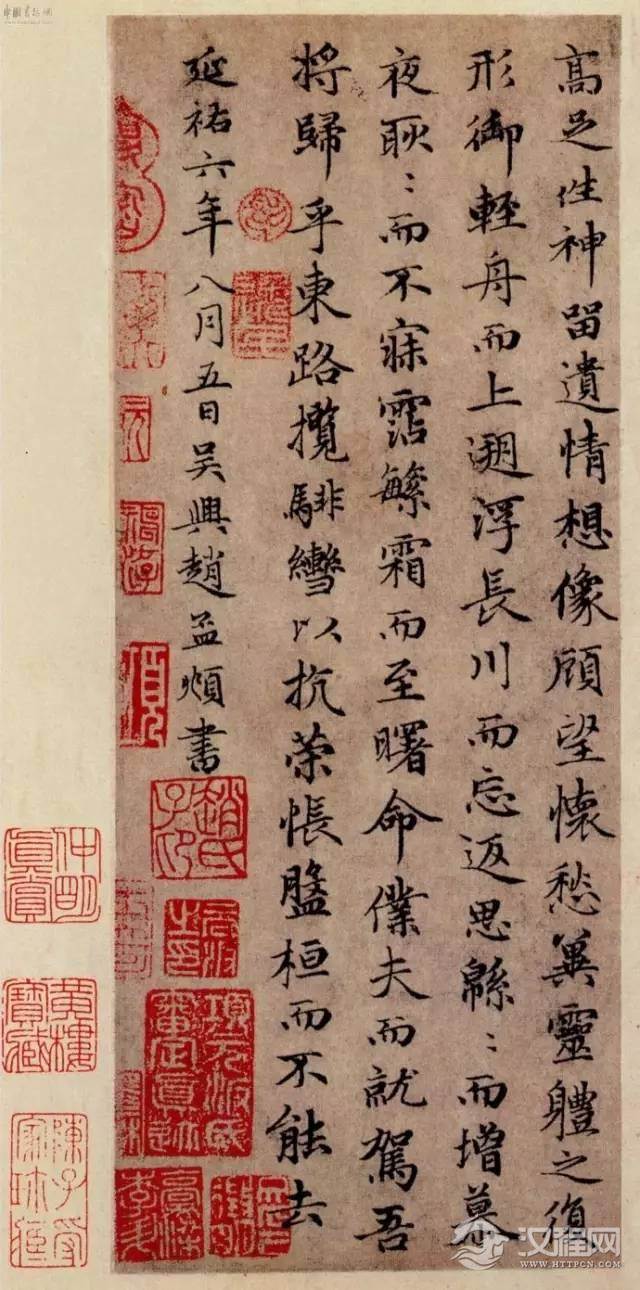 高足徃神留遺情想像頋望懷愁兾靈軆之復
形御輕舟而上遡浮長川而忘返思緜〻而增慕
夜耿〻而不寐霑繁霜而至曙命僕夫而就駕吾
將歸乎東路攬騑轡以抗策悵盤桓而不能去
延祐六年八月五日吳興趙孟頫書
趙氏子印
項元汴氏審定真跡
黃樓寶藏
汉程网
WWW.HTTPCN.COM